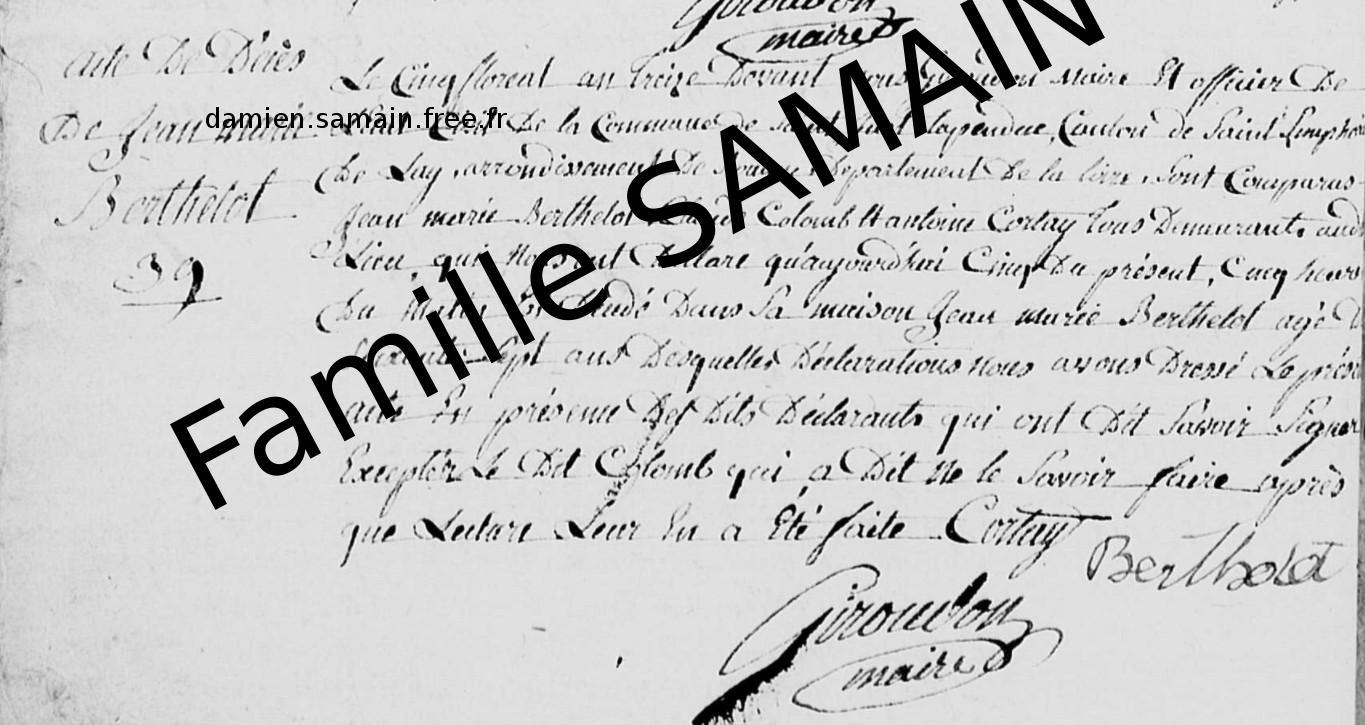 Giroudon
maire
acte De Décès
De Jean marie
Berthelot
39
damien.samain.free.fr
Famille SAMAIN
Le Cinq floreal an treize Devant nous maire Et officier De
De la Commune De Saint Lapendue, Canton de Saint Simpho
De Lay, arrondissement De Département De la loire, Sont Comparus
Jean marie Berthelot Colomb Et antoine Cortay tous Demeurants aud
Lieu, qui Nous ont Déclaré qu'aujourd'hui Cinq Du présent, Cinq heures
Du Matin Est Dans Sa maison Jean marie Berthelot agé D
Sept ans Desquelles Déclarations Nous avons Dressé Le prése
acte En présence Des Dits Déclarants qui ont Dit Savoir Signer
Excepter Le Dit Colomb qui a Dit Ne le Savoir faire après
que Lecture Leur En a Eté faite Cortay
Berthelot
Giroudon
maire